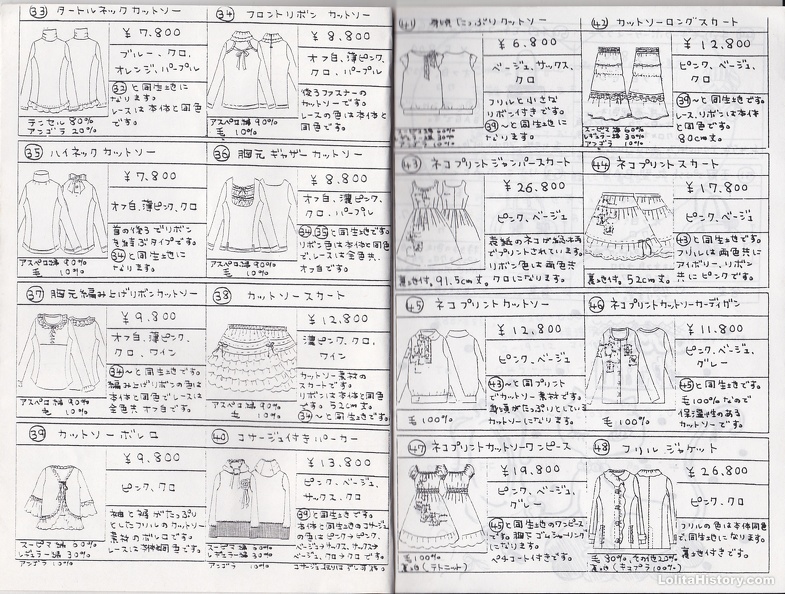 ㉝ タートルネックカットソー
¥7,800
ブルー、クロ、
オレンジ、パープル
㉜と同生地に
なります。
レースは本体と同色
です。
テンセル 80%
アンゴラ 20%
㉞ フロントリボン カットソー
¥8,800
オフ白、薄ピンク、
クロ、パープル
後ろファスナーの
カットソーです。
レースの色は本体と
同色です。
アスペロ綿 90%
毛 10%
㉟ ハイネック カットソー
¥7,800
オフ白、薄ピンク、クロ
首の後ろでリボン
を結ぶタイプです。
㉞と同生地に
なります。
アスペロ綿 90%
毛 10%
㊱ 胸元ギャザー カットソー
¥8,800
オフ白、濃ピンク、
クロ、パープル
㉞㉟と同生地です。
リボン色は本体と同色
で、レースは全色共、
オフ白です。
アスペロ綿 90%
毛 10%
㊲ 胸元編み上げリボンカットソー
¥9,800
オフ白、薄ピンク、
クロ、ワイン
㉞〜と同生地です。
編み上げリボンの色は
本体と同色でレースは
全色共オフ白です。
アスペロ綿 90%
毛 10%
㊳ カットソースカート
¥12,800
濃ピンク、クロ
ワイン
カットソー素材の
スカートです。
リボンは本体と同色
です。52cm丈。
㉞〜と同生地です。
アスペロ綿 90%
毛 10%
㊴ カットソーボレロ
¥9,800
ピンク、クロ
袖と裾がたっぷり
としたフリルのカットソー
素材のボレロです。
レースは本体と同色です。
スーピマ綿 60%
レギュラー綿 30%
アンゴラ 10%
㊵ コサージュ付きパーカー
¥13,800
ピンク、ベージュ、
サックス、クロ
㊴と同生地です。
本体と同生地のコサージュ
の色はピンク→ピンク、
ベージュ→サックス、サックス→
ベージュ、クロ→クロです。
スーピマ綿 60%
レギュラー綿 30%
アンゴラ 10%
カットソー
¥6,800
ベージュ、サックス、
クロ
フリルと小さな
リボン付きです。
㊴〜と同生地に
なります。
㊷ カットソーロングスカート
¥12,800
ピンク、ベージュ、
クロ
㊴〜と同生地です。
レース、リボンは本体
と同色です。
80cm丈
スーピマ綿 60%
レギュラー綿 30%
アンゴラ 10%
㊸ ネコプリントジャンパースカート
¥26,800
ピンク、ベージュ
でプリントされています。
リボン色は両色共
クロになります。
裏地付。91.5cm丈。
㊹ ネコプリントスカート
¥17,800
ピンク、ベージュ
㊸と同生地です。
フリルは両色共に
アイボリー、リボン
共にピンクです。
裏地付。52cm丈。
㊺ ネコプリントカットソー
¥12,800
ピンク、ベージュ
㊸〜と同プリント
でカットソー素材です。
たっぷりとしている
カットソーになります。
毛 100%
㊻ ネコプリントカットソーカーディガン
¥11,800
ピンク、ベージュ、
グレー
㊺と同生地です。
毛100%なので
保温性のある
カットソーです。
毛 100%
㊼ ネコプリントカットソーワンピース
¥19,800
ピンク、ベージュ、
グレー
㊺と同生地のワンピース
です。胸下ゴムシャーリング
になります。
ペチコート付きです。
毛100%
裏地(テトニット)
㊽ フリル ジャケット
¥26,800
ピンク、クロ
フリルの色は本体同色
で、同生地になります。
裏地付きです。
毛 80%、その他20%
裏地(キュプラ 100%)
LolitaHistory.com